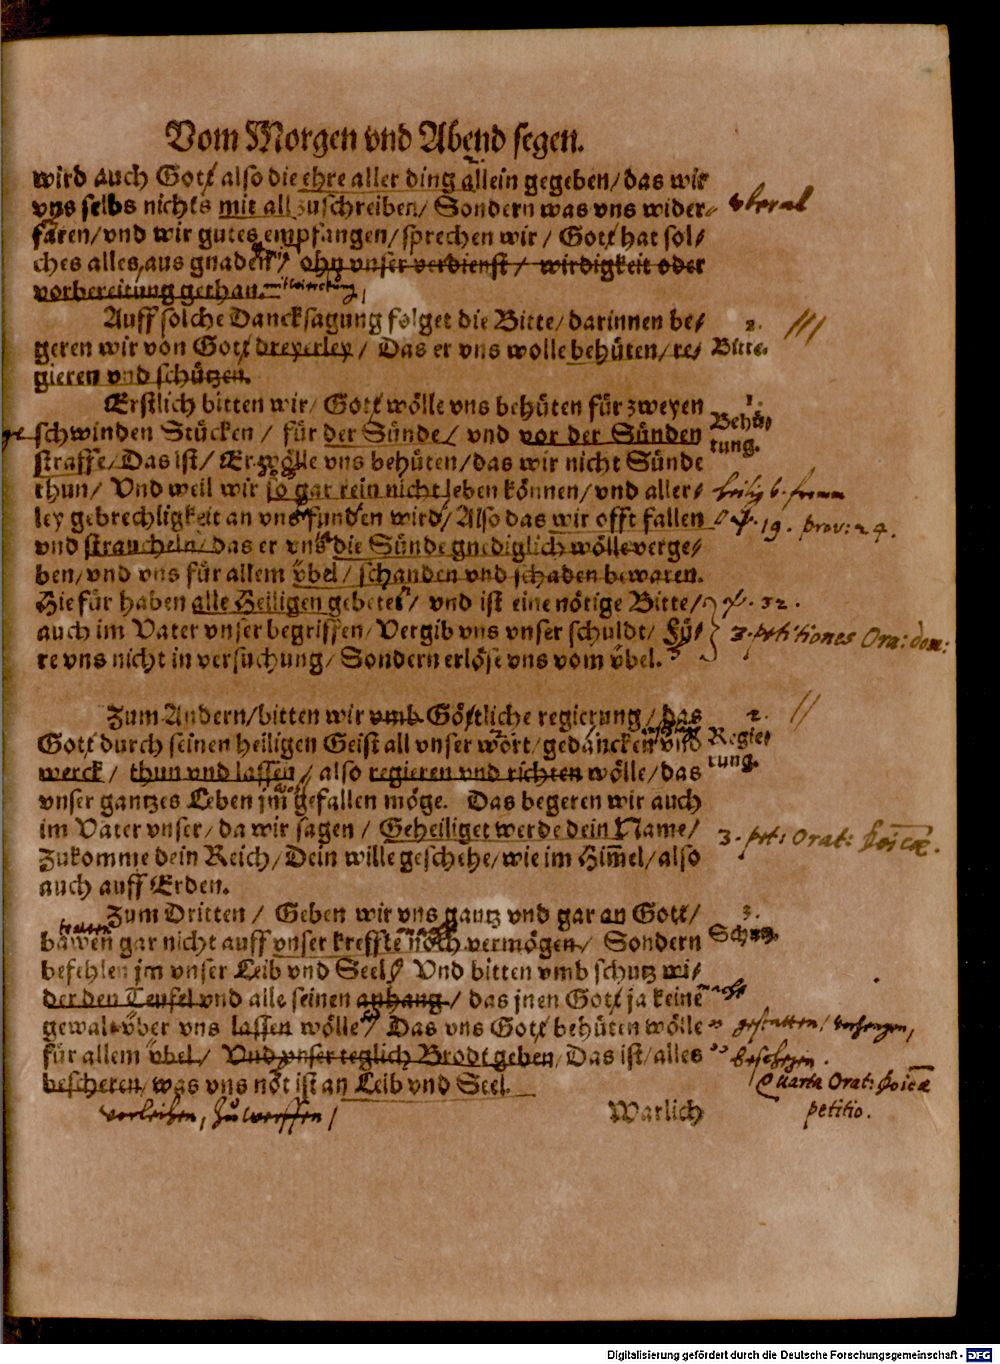 Vom Morgen vnd Abend segen.
wird auch Gott also die ehre aller ding allein gegeben/ das wir
vns selbs nichts mit all zuschreiben/ Sondern was vns wider- vberal
faren/ vnd wir gutes empfangen/ sprechen wir/ Gott hat sol-
ches alles aus gnaden/ ohn vnser verdienst/ wirdigkeit oder
vorbereitung gethan.
Auff solche Dancksagung folget die Bitte/ darinnen be- 2.
geren wir von Gott dreyerley/ Das er vns wolle behüten/ re- Bitte.
gieren vnd schützen.
Erstlich bitten wir/ Gott wölle vns behüten für zweyen 1.
schwinden Stücken/ für der Sünde/ vnd vor der Sünden Behü-
straffe/ Das ist/ Er wölle vns behüten/ das wir nicht Sünde tung.
thun/ Vnd weil wir so gar rein nicht leben können/ vnd aller-
ley gebrechligkeit an vns funden wird/ Also das wir offt fallen 19. prov: 24.
vnd straucheln/ das er vns die Sünde gnediglich wölle verge-
ben/ vnd vns für allem vbel/ schanden vnd schaden bewaren.
Hiefür haben alle Heiligen gebetet/ vnd ist eine nötige Bitte/ 32.
auch im Vater vnser begriffen/ Vergib vns vnser schuldt/ Fü- 3. petitiones Ora: dom:
re vns nicht in versuchung/ Sondern erlöse vns vom vbel.
Zum Andern/ bitten wir vmb Göttliche regierung/ das 2.
Gott durch seinen heiligen Geist all vnser wort/ gedancken vnd Regie-
werck/ thun vnd lassen/ also regieren vnd richten wölle/ das rung.
vnser gantzes Leben jm gefallen möge. Das begeren wir auch
im Vater vnser/ da wir sagen/ Geheiliget werde dein Name/ 3. pet: Orat:
Zukomme dein Reich/ Dein wille geschehe/ wie im Himel/ also
auch auff Erden.
Zum Dritten/ Geben wir vns gantz vnd gar an Gott/ 3.
bawen gar nicht auff vnser kreffte noch vermögen/ Sondern Schutz.
befehlen jm vnser Leib vnd Seel/ Vnd bitten vmb schutz wi-
der den Teufel vnd alle seinen anhang/ das jnen Gott ja keine macht
gewalt vber vns lassen wölle/ Das vns Gott behüten wölle gestatten/ verhengen,
für allem vbel/ Vnd vnser teglich Brodt geben/ Das ist/ alles
bescheren/ was vns not ist an Leib vnd Seel. Quarta Orat:
verleihen, zuwerffen/ petitio.
Warlich
Digitalisierung gefördert durch die Deutsche Forschungsgemeinschaft - DFG